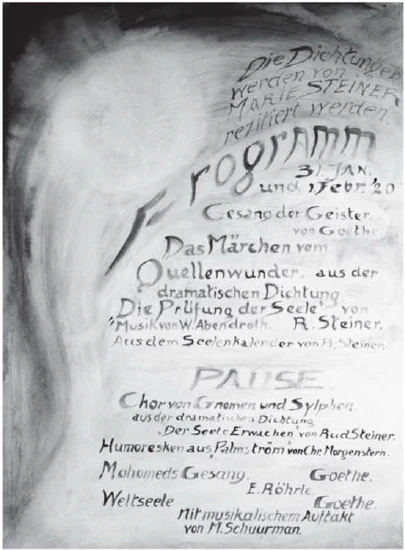 Die Dichtungen
werden von
MARIE STEINER
rezitiert werden.
Programm
31. JAN.
und 1. Febr. '20
Gesang der Geister.
von Goethe
Das Märchen vom
Quellenwunder. aus der
dramatischen Dichtung
"Die Prüfung der Seele" von
Musik von W. Abendroth. R. Steiner.
Aus dem Seelenkalender von R. Steiner.
PAUSE.
Chor von Gnomen und Sylphen.
aus der dramatischen Dichtung
"Der Seele Erwachen" von Rud Steiner.
Humoresken aus Palmström von Chr. Morgenstern.
Mahomeds Gesang. Goethe.
E. Röhrle.
Weltseele Goethe.
Mit musikalischem Auftakt
von M. Schuurman.